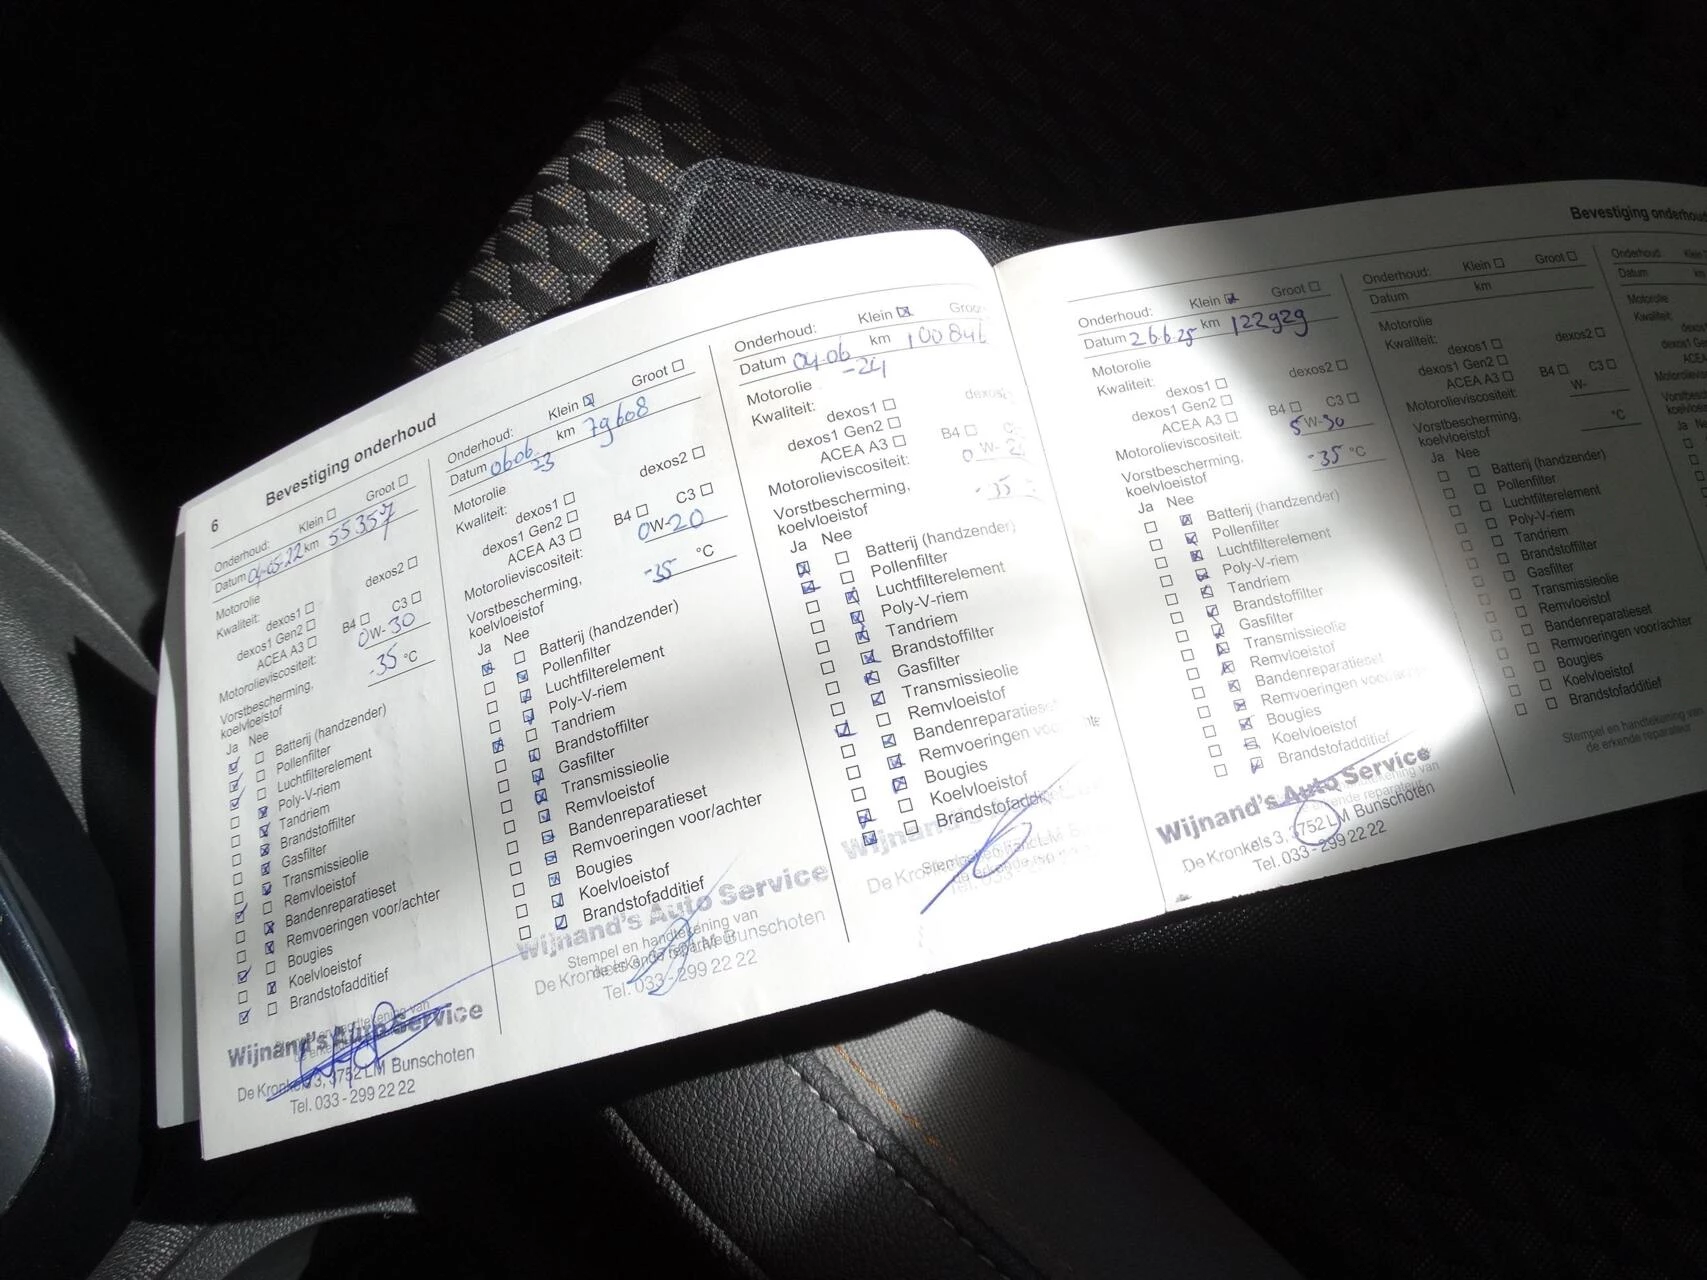 6
Bevestiging onderhoud
Onderhoud: Klein Groot
Datum 04-05-22 km 55357
Motorolie
Kwaliteit: dexos1 dexos2
dexos1 Gen2
ACEA A3 B4 C3
Motorolieviscositeit: 0W-30
Vorstbescherming,
koelvloeistof -35 °C
Ja Nee
Batterij (handzender)
Pollenfilter
Luchtfilterelement
Poly-V-riem
Tandriem
Brandstoffilter
Gasfilter
Transmissieolie
Remvloeistof
Bandenreparatieset
Remvoeringen voor/achter
Bougies
Koelvloeistof
Brandstofadditief
Wijnand's Auto Service
De Kronkels 3, 3752 LM Bunschoten
Tel. 033-299 22 22
Onderhoud: Klein Groot
Datum 0606-23 km 79608
Motorolie
Kwaliteit: dexos1 dexos2
dexos1 Gen2
ACEA A3 B4 C3
Motorolieviscositeit: 0W-20
Vorstbescherming,
koelvloeistof -35 °C
Ja Nee
Batterij (handzender)
Pollenfilter
Luchtfilterelement
Poly-V-riem
Tandriem
Brandstoffilter
Gasfilter
Transmissieolie
Remvloeistof
Bandenreparatieset
Remvoeringen voor/achter
Bougies
Koelvloeistof
Brandstofadditief
Wijnand's Auto Service
Stempel en handtekening van
de erkende reparateur
De Kronkels 3, 3752 LM Bunschoten
Tel. 033-299 22 22
Onderhoud: Klein Groot
Datum 04-06-24 km 100846
Motorolie
Kwaliteit: dexos1 dexos2
dexos1 Gen2
ACEA A3 B4
Motorolieviscositeit: 0 W-
Vorstbescherming,
koelvloeistof -35
Ja Nee
Batterij (handzender)
Pollenfilter
Luchtfilterelement
Poly-V-riem
Tandriem
Brandstoffilter
Gasfilter
Transmissieolie
Remvloeistof
Bandenreparatieset
Remvoeringen
Bougies
Koelvloeistof
Brandstofadditief
Bevestiging onderhoud
Onderhoud: Klein Groot
Datum 26.6.25 km 122929
Motorolie
Kwaliteit: dexos1 dexos2
dexos1 Gen2
ACEA A3 B4 C3
Motorolieviscositeit: 5W-30
Vorstbescherming,
koelvloeistof -35 °C
Ja Nee
Batterij (handzender)
Pollenfilter
Luchtfilterelement
Poly-V-riem
Tandriem
Brandstoffilter
Gasfilter
Transmissieolie
Remvloeistof
Bandenreparatieset
Remvoeringen voor/achter
Bougies
Koelvloeistof
Brandstofadditief
Wijnand's Auto Service
De Kronkels 3, 3752 LM Bunschoten
Tel. 033-299 22 22
Onderhoud: Klein Groot
Datum km
Motorolie
Kwaliteit: dexos1 dexos2
dexos1 Gen2
ACEA A3 B4 C3
Motorolieviscositeit: W-
Vorstbescherming,
koelvloeistof °C
Ja Nee
Batterij (handzender)
Pollenfilter
Luchtfilterelement
Poly-V-riem
Tandriem
Brandstoffilter
Gasfilter
Transmissieolie
Remvloeistof
Bandenreparatieset
Remvoeringen voor/achter
Bougies
Koelvloeistof
Brandstofadditief
Stempel en handtekening van
de erkende reparateur
Onderhoud:
Datum
Motorolie
Kwaliteit: